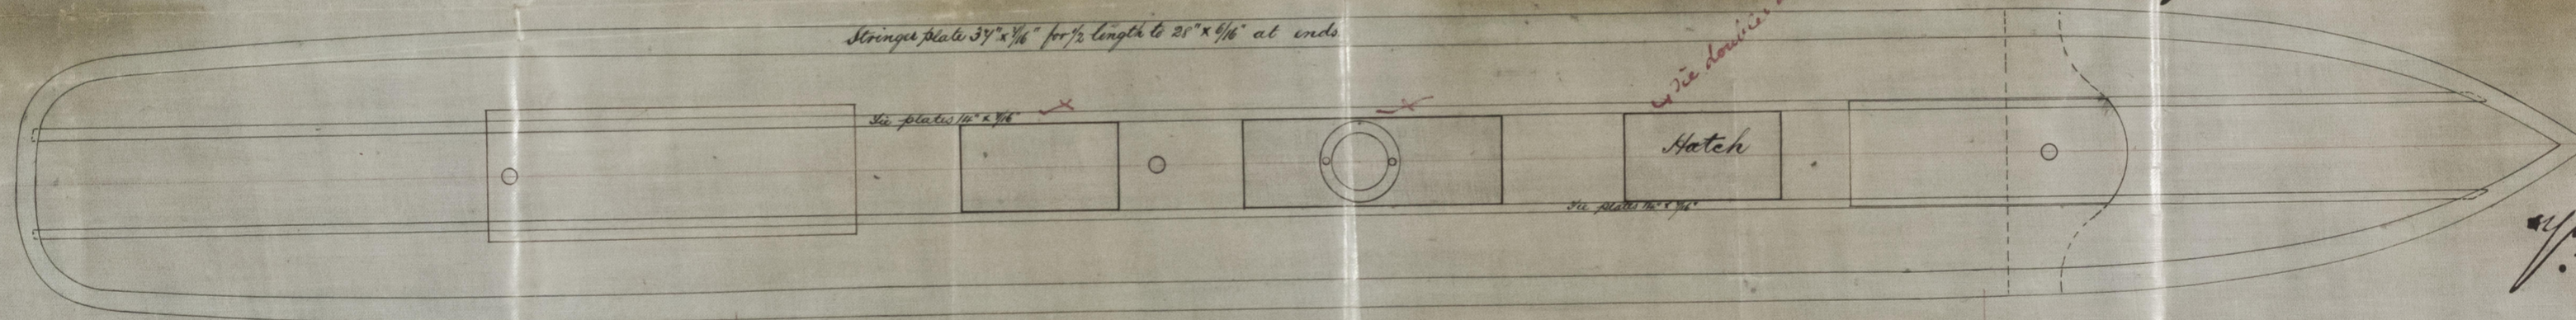 Stringer plate 37" x 7/16" for 1/2 length to 28" x 6/16" at ends
Tie plates 14" x 7/16"
Hatch
Tie plates